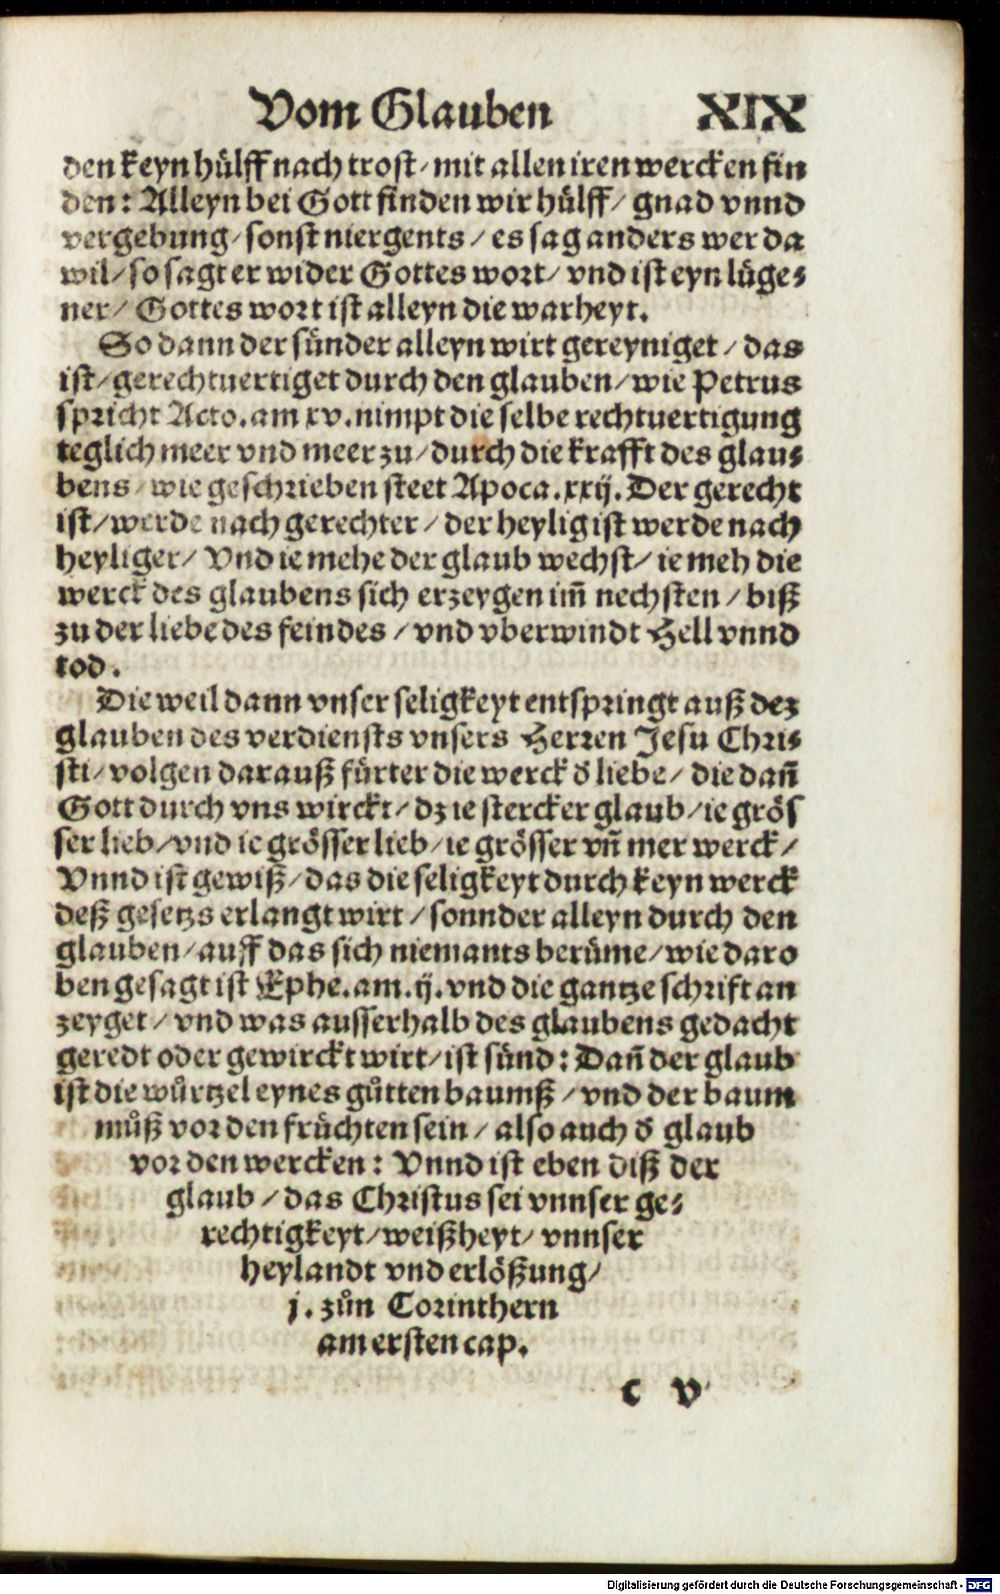 Vom Glauben XIX
den keyn hülff nach trost / mit allen iren wercken fin
den: Alleyn bei Gott finden wir hülff / gnad vnnd
vergebung / sonst niergents / es sag anders wer da
wil / so sagt er wider Gottes wort / vnd ist eyn lüge⸗
ner / Gottes wort ist alleyn die warheyt.
So dann der sünder alleyn wirt gereyniget / das
ist / gerechtuertiget durch den glauben / wie Petrus
spricht Acto. am xv. nimpt die selbe rechtuertigung
teglich meer vnd meer zu / durch die krafft des glau⸗
bens / wie geschrieben steet Apoca. xxij. Der gerecht
ist / werde nach gerechter / der heylig ist werde nach
heyliger / Vnd ie mehe der glaub wechst / ie meh die
werck des glaubens sich erzeygen im̃ nechsten / biß
zu der liebe des feindes / vnd vberwindt Hell vnnd
tod.
Die weil dann vnser seligkeyt entspringt auß dez
glauben des verdiensts vnsers Herren Jesu Chri⸗
sti / volgen darauß fürter die werck d̄ liebe / die dañ
Gott durch vns wirckt / dz ie stercker glaub / ie grös
ser lieb / vnd ie grösser lieb / ie grösser vñ mer werck /
Vnnd ist gewiß / das die seligkeyt durch keyn werck
deß gesetzs erlangt wirt / sonnder alleyn durch den
glauben / auff das sich niemants berüme / wie daro
ben gesagt ist Ephe. am. ij. vnd die gantze schrift an
zeyget / vnd was ausserhalb des glaubens gedacht
geredt oder gewirckt wirt / ist sünd: Dañ der glaub
ist die wůrtzel eynes gůtten baumß / vnd der baum
můß vor den früchten sein / also auch d̄ glaub
vor den wercken: Vnnd ist eben diß der
glaub / das Christus sei vnnser ge⸗
rechtigkeyt / weißheyt / vnnser
heylandt vnd erlößung /
j. zůn Corinthern
am ersten cap.
c v
Digitalisierung gefördert durch die Deutsche Forschungsgemeinschaft - DFG